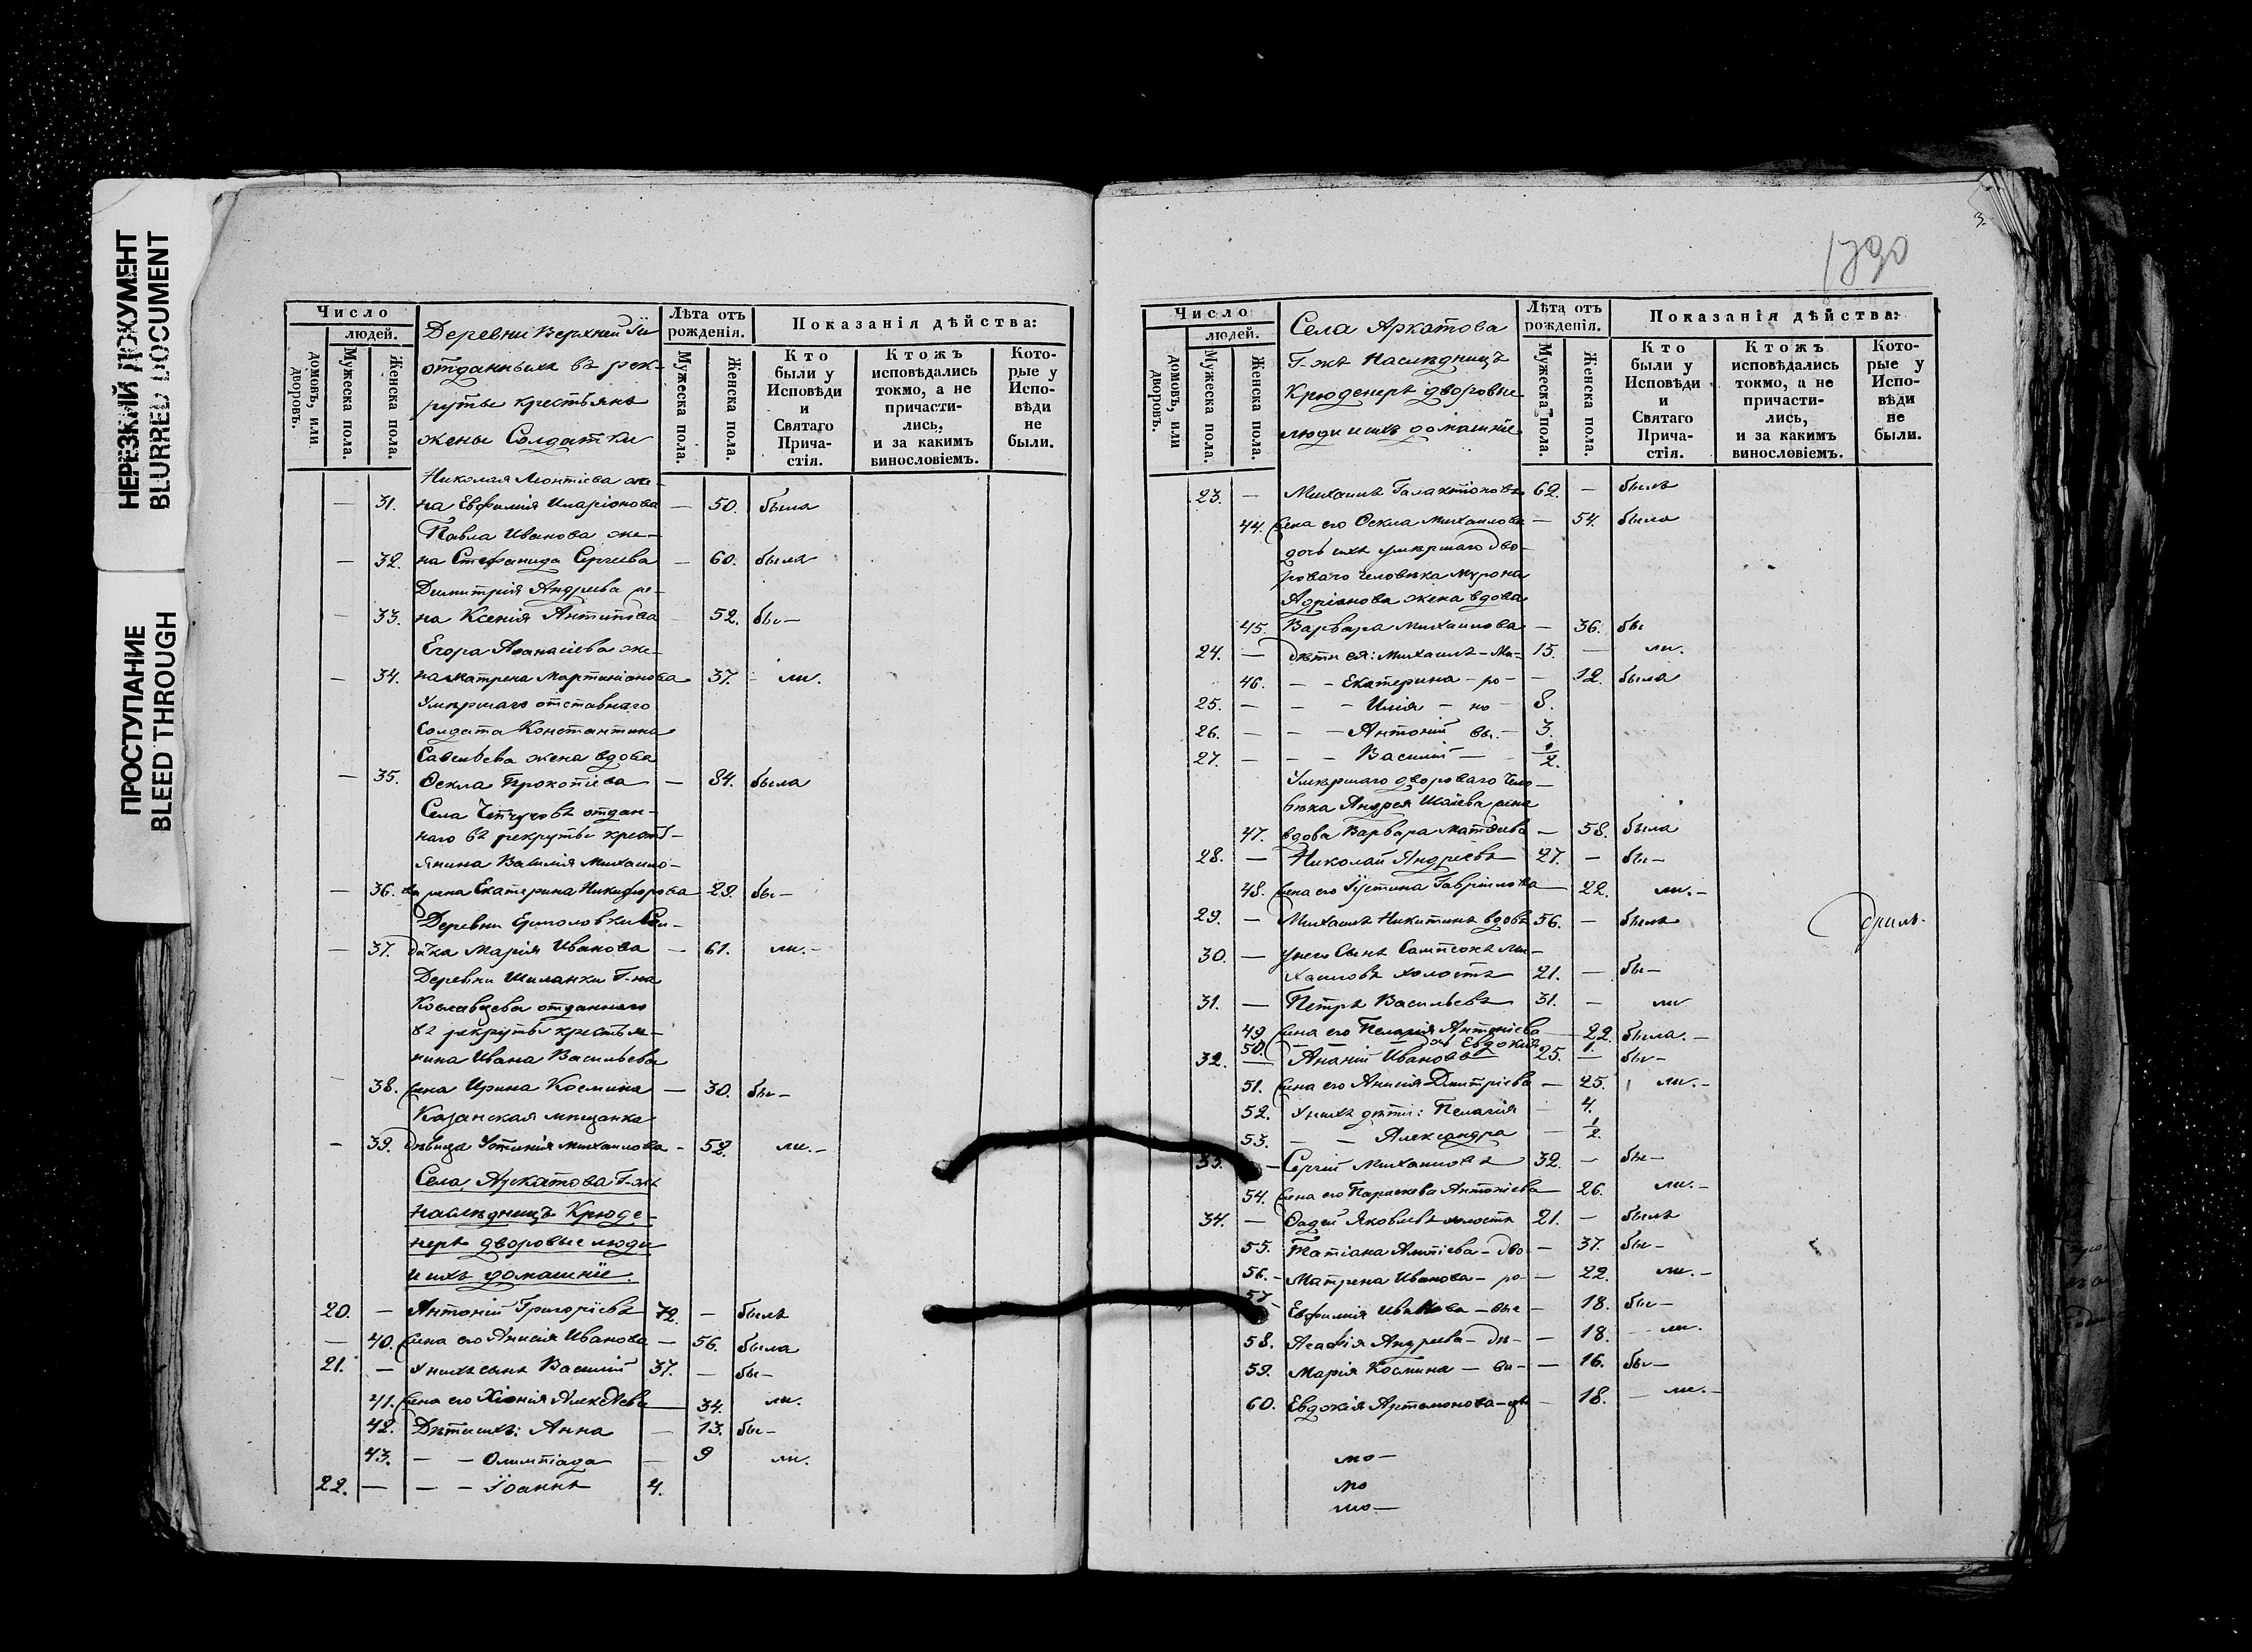 НЕРЕЗКИЙ ДОКУМЕНТ
BLURRED DOCUMENT
ПРОСТУПАНИЕ
BLEED THROUGH
Число
людей.
домовъ, или дворовъ.
Мужеска пола.
Женска пола.
Деревни Верхней
отданныхъ въ рек-
руты крестьянъ
жены Солдатки
Лѣта отъ рожденія.
Мужеска пола.
Женска пола.
Показанія дѣйства:
Кто были у Исповѣди и Святаго Прича-стія.
Ктожъ исповѣдались токмо, а не причасти-лись, и за какимъ винословіемъ.
Кото-рые у Испо-вѣди не были.
Николая Леонтіева же-
— 31. на Евфимія Иларіонова — 50. была
Павла Иванова же-
— 32. на Стефанида Сергіева — 60. была
Димитрія Андреева же-
— 33. на Ксенія Антипова 52. бы —
Егора Аѳанасіева же-
— 34. на Матрена Мартиніанова 37. - ли.
Умершаго отставнаго
Солдата Константина
Савельева жена вдова
— 35. Ѳекла Прокопіева — 84. была
Села отдан-
наго въ рекруты кресть-
янина Василія Михаило-
— 36. ва жена Екатерина Никифорова 29. бы —
Деревни Ермоловки Сол-
— 37. датка Марія Иванова — 61. ли. -
Деревни Шиланки Г-на
отданнаго
въ рекруты крестья-
нина Ивана Васильева
38. жена Ирина Космина — 30. бы —
Казанская мещанка
— 39. дѣвица Устинія Михаилова - 52. ли. -
Села Аркатова Г-жъ
наслѣдницъ Крюде-
неръ дворовые люди
и ихъ домашніе.
20. — Антоній Григоріевъ 72. — былъ
— 40. жена его Анисія Иванова — 56. была
21. — У нихъ сынъ Василій 37. — бы —
41. жена его Хіонія Алексѣева — 34. ли.
42. Дѣти ихъ: Анна — 13. бы —
43. — — Олимпіада — 9 ли.
22. — — — Іоаннъ 4.
3.
1290
Число
людей.
домовъ, или дворовъ.
Мужеска пола.
Женска пола.
Села Аркатова
Г-жъ Наслѣдницъ
Крюденеръ дворовые
люди и ихъ домашніе
Лѣта отъ рожденія.
Мужеска пола.
Женска пола.
Показанія дѣйства:
Кто были у Исповѣди и Святаго Прича-стія.
Ктожъ исповѣдались токмо, а не причасти-лись, и за какимъ винословіемъ.
Кото-рые у Испо-вѣди не были.
23. — Михаилъ Галактіоновъ 62. — былъ
44. жена его Ѳекла Михаилова — 54. была
дочь ихъ умершаго дво-
роваго человѣка Мирона
Адріанова жена вдова
45. Варвара Михаилова — 36. бы
24. — дѣти ея: Михаилъ — Ми- 15. — ли.
46. — — Екатерина — ро — — 12. была
25. — — — Илія — но — 8.
26. — — — Антоній вы. — 3.
27. — — — Василій — 1/2.
Умершаго двороваго чело-
вѣка Андрея Исаіева жена
47. вдова Варвара Матѳіева — 58. была
28. — Николай Андреевъ 27. — бы —
48. жена его Іустина Гавріилова 22. ли. -
29. — Михаилъ Никитинъ вдовъ 56. — былъ
30. — у него Сынъ Сампсонъ Ми-
хаиловъ холостъ 21. — бы —
31. — Петръ Васильевъ 31. — ли
49. жена его Пелагія Антоніева 22. была. —
50. дочь Евдокія 1.
32. — Ананій Ивановъ 25. — бы —
51. жена его Анисія Дмитріева — 25. ли. -
52. У нихъ дѣти: Пелагія — 4.
53. — — Александра — 1/2.
33. — Сергій Михаиловъ 32. — бы —
54. жена его Параскева Антоніева 26. ли. -
34. — Ѳадей Яковлевъ холостъ 21. — былъ
55. Татіана — дво — 37. бы —
56. - Матрена Иванова — ро — — 22. ли. -
57. Евфимія Иванова — вые — 18. бы —
58. Агаѳія Андреева — дѣ — — 18. — ли.
59. Марія Космина — ви — — 16. бы —
60. Евдокія Артамонова — цы — 18. — ли. -